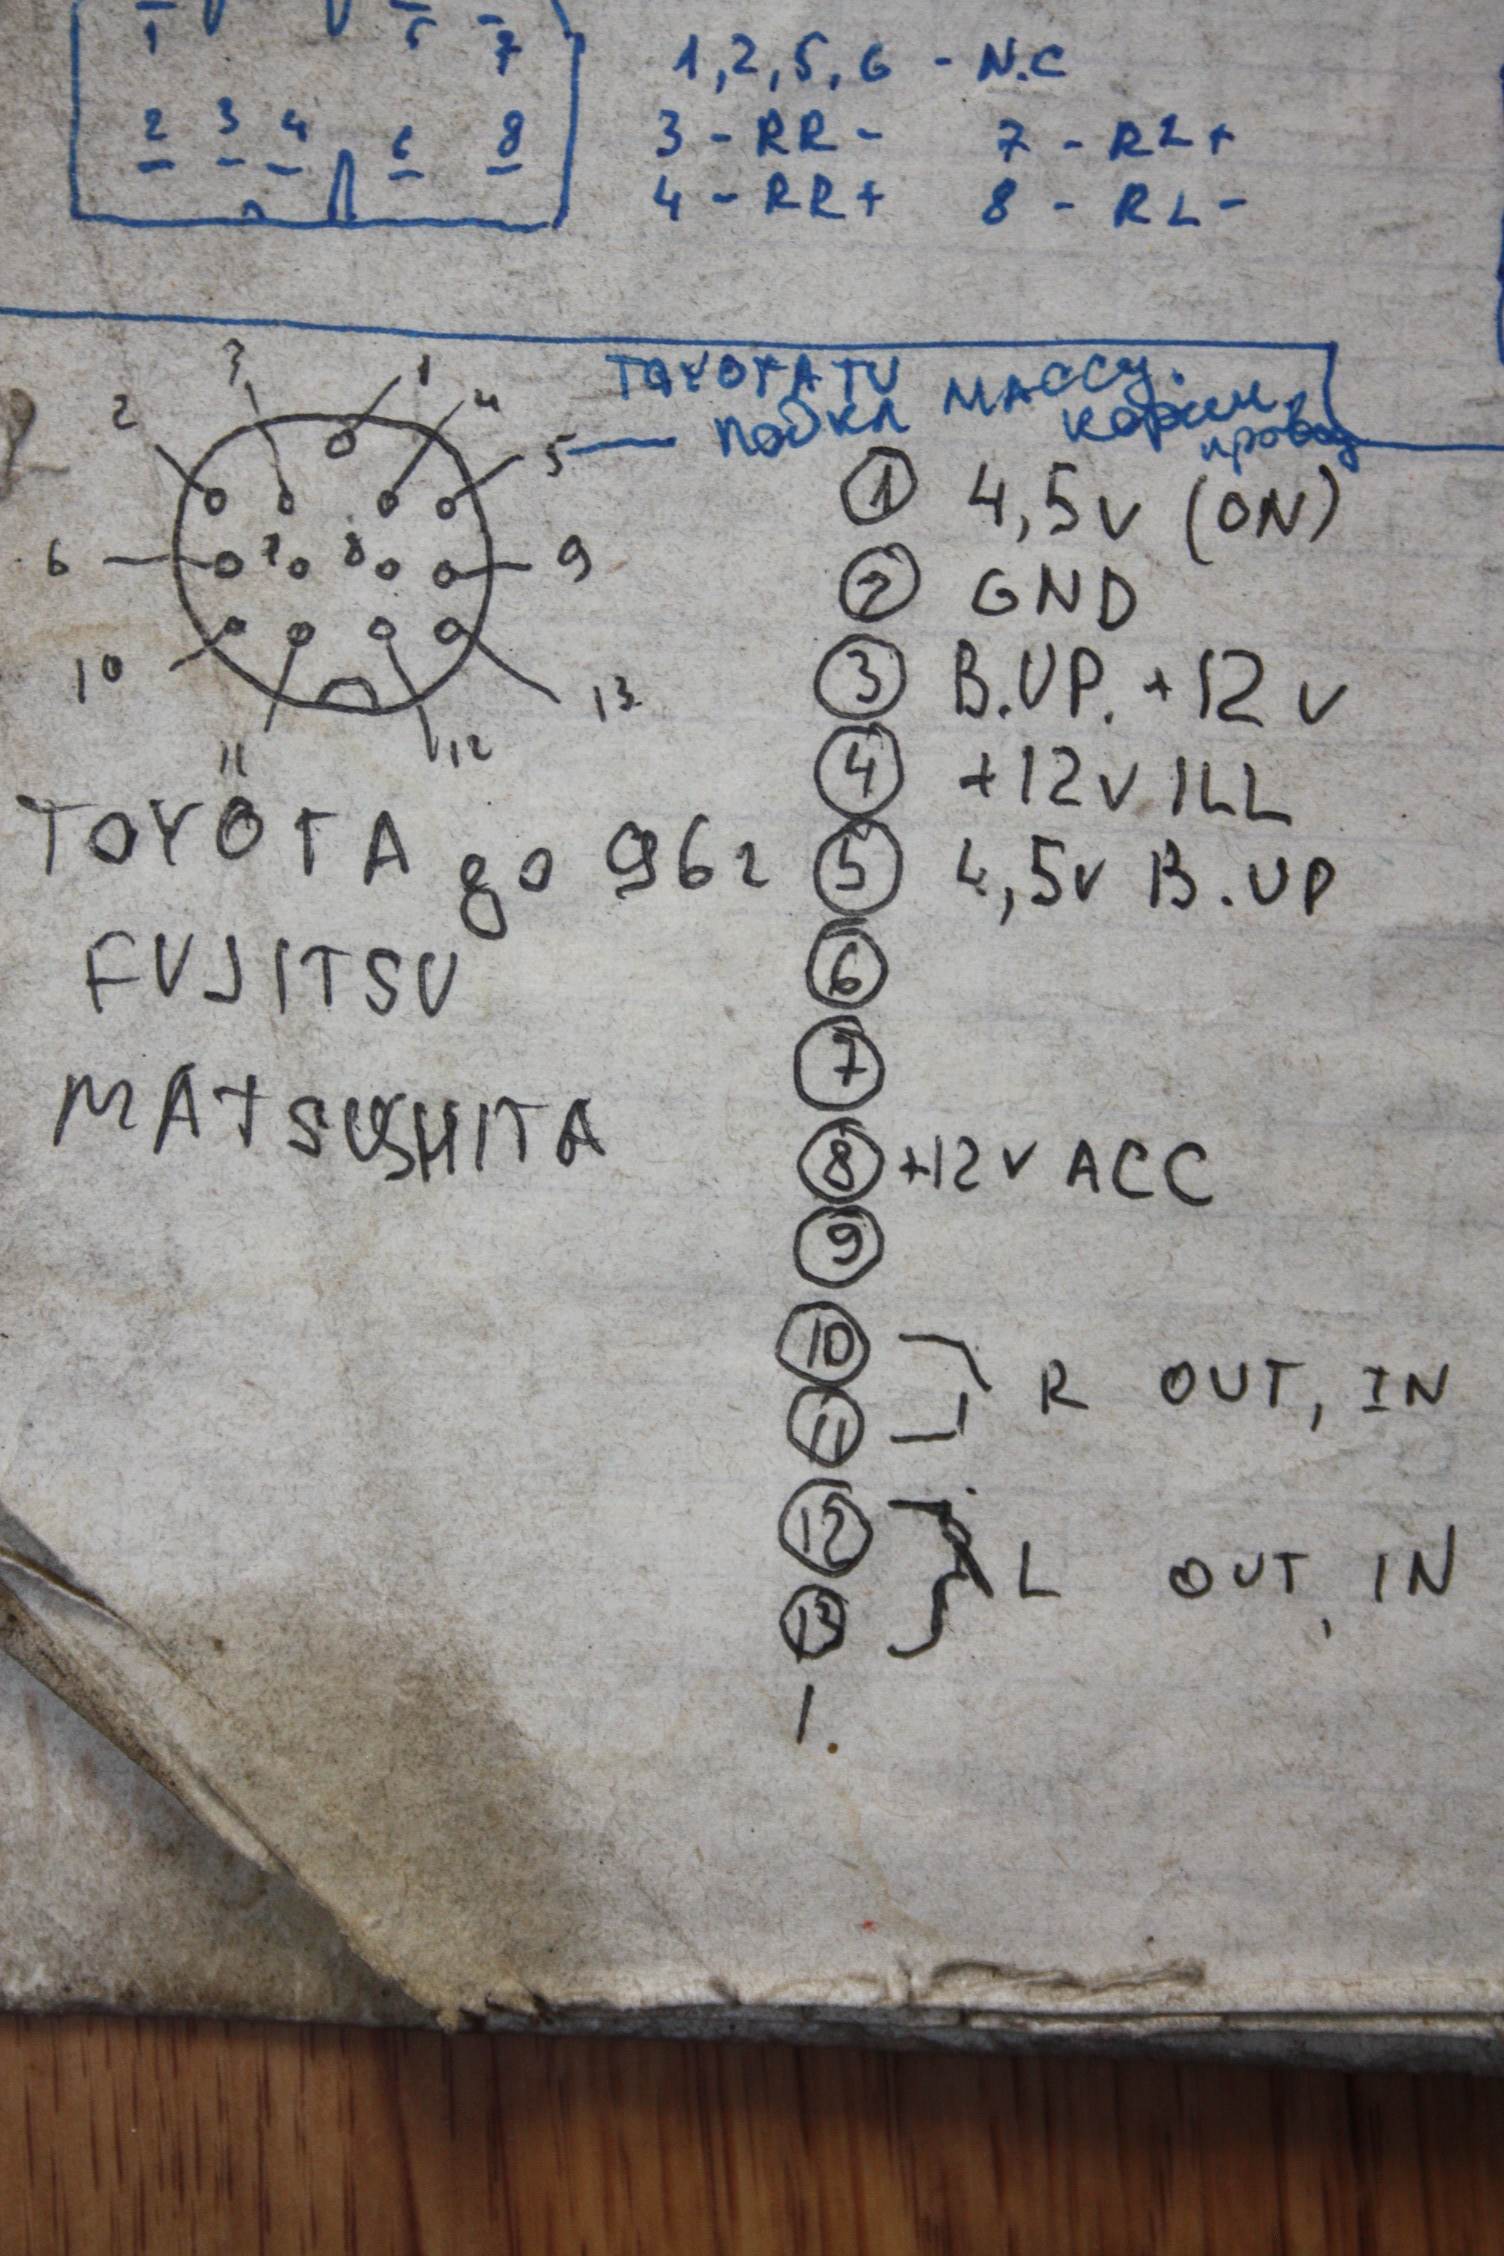 1 5 7
2 3 4 6 8
1,2,5,6 - N.C
3 - RR - 7 - RL +
4 - RR + 8 - RL -
TOYOTA TV МАССУ.
5 — подкл коричн. провод
3 1
2 4
6 7 8 9
10 13
11 12
TOYOTA до 96г
FUJITSU
MATSUSHITA
① 4,5v (ON)
② GND
③ B.UP. +12 v
④ +12v ILL
⑤ 4,5v B.UP
⑥
⑦
⑧ +12v ACC
⑨
⑩
⑪ R OUT, IN
⑫
⑬ L OUT, IN
1.